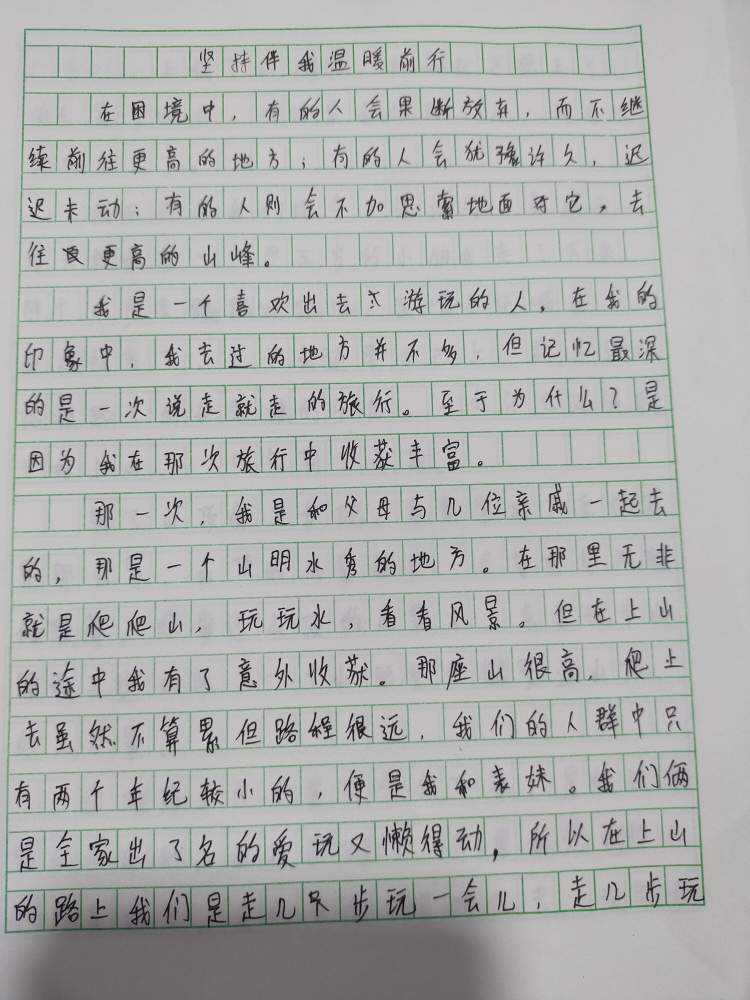 坚持伴我温暖前行
在困境中，有的人会果断放弃，而不继
续前往更高的地方；有的人会犹豫许久，迟
迟未动；有的人则会不加思索地面对它，去
往更高的山峰。
我是一个喜欢出去游玩的人，在我的
印象中，我去过的地方并不多，但记忆最深
的是一次说走就走的旅行。至于为什么？是
因为我在那次旅行中收获丰富。
那一次，我是和父母与几位亲戚一起去
的，那是一个山明水秀的地方。在那里无非
就是爬爬山，玩玩水，看看风景。但在上山
的途中我有了意外收获。那座山很高，爬上
去虽然不算累但路程很远，我们的人群中只
有两个年纪较小的，便是我和表妹。我们俩
是全家出了名的爱玩又懒得动，所以在上山
的路上我们是走几步玩一会儿，走几步玩